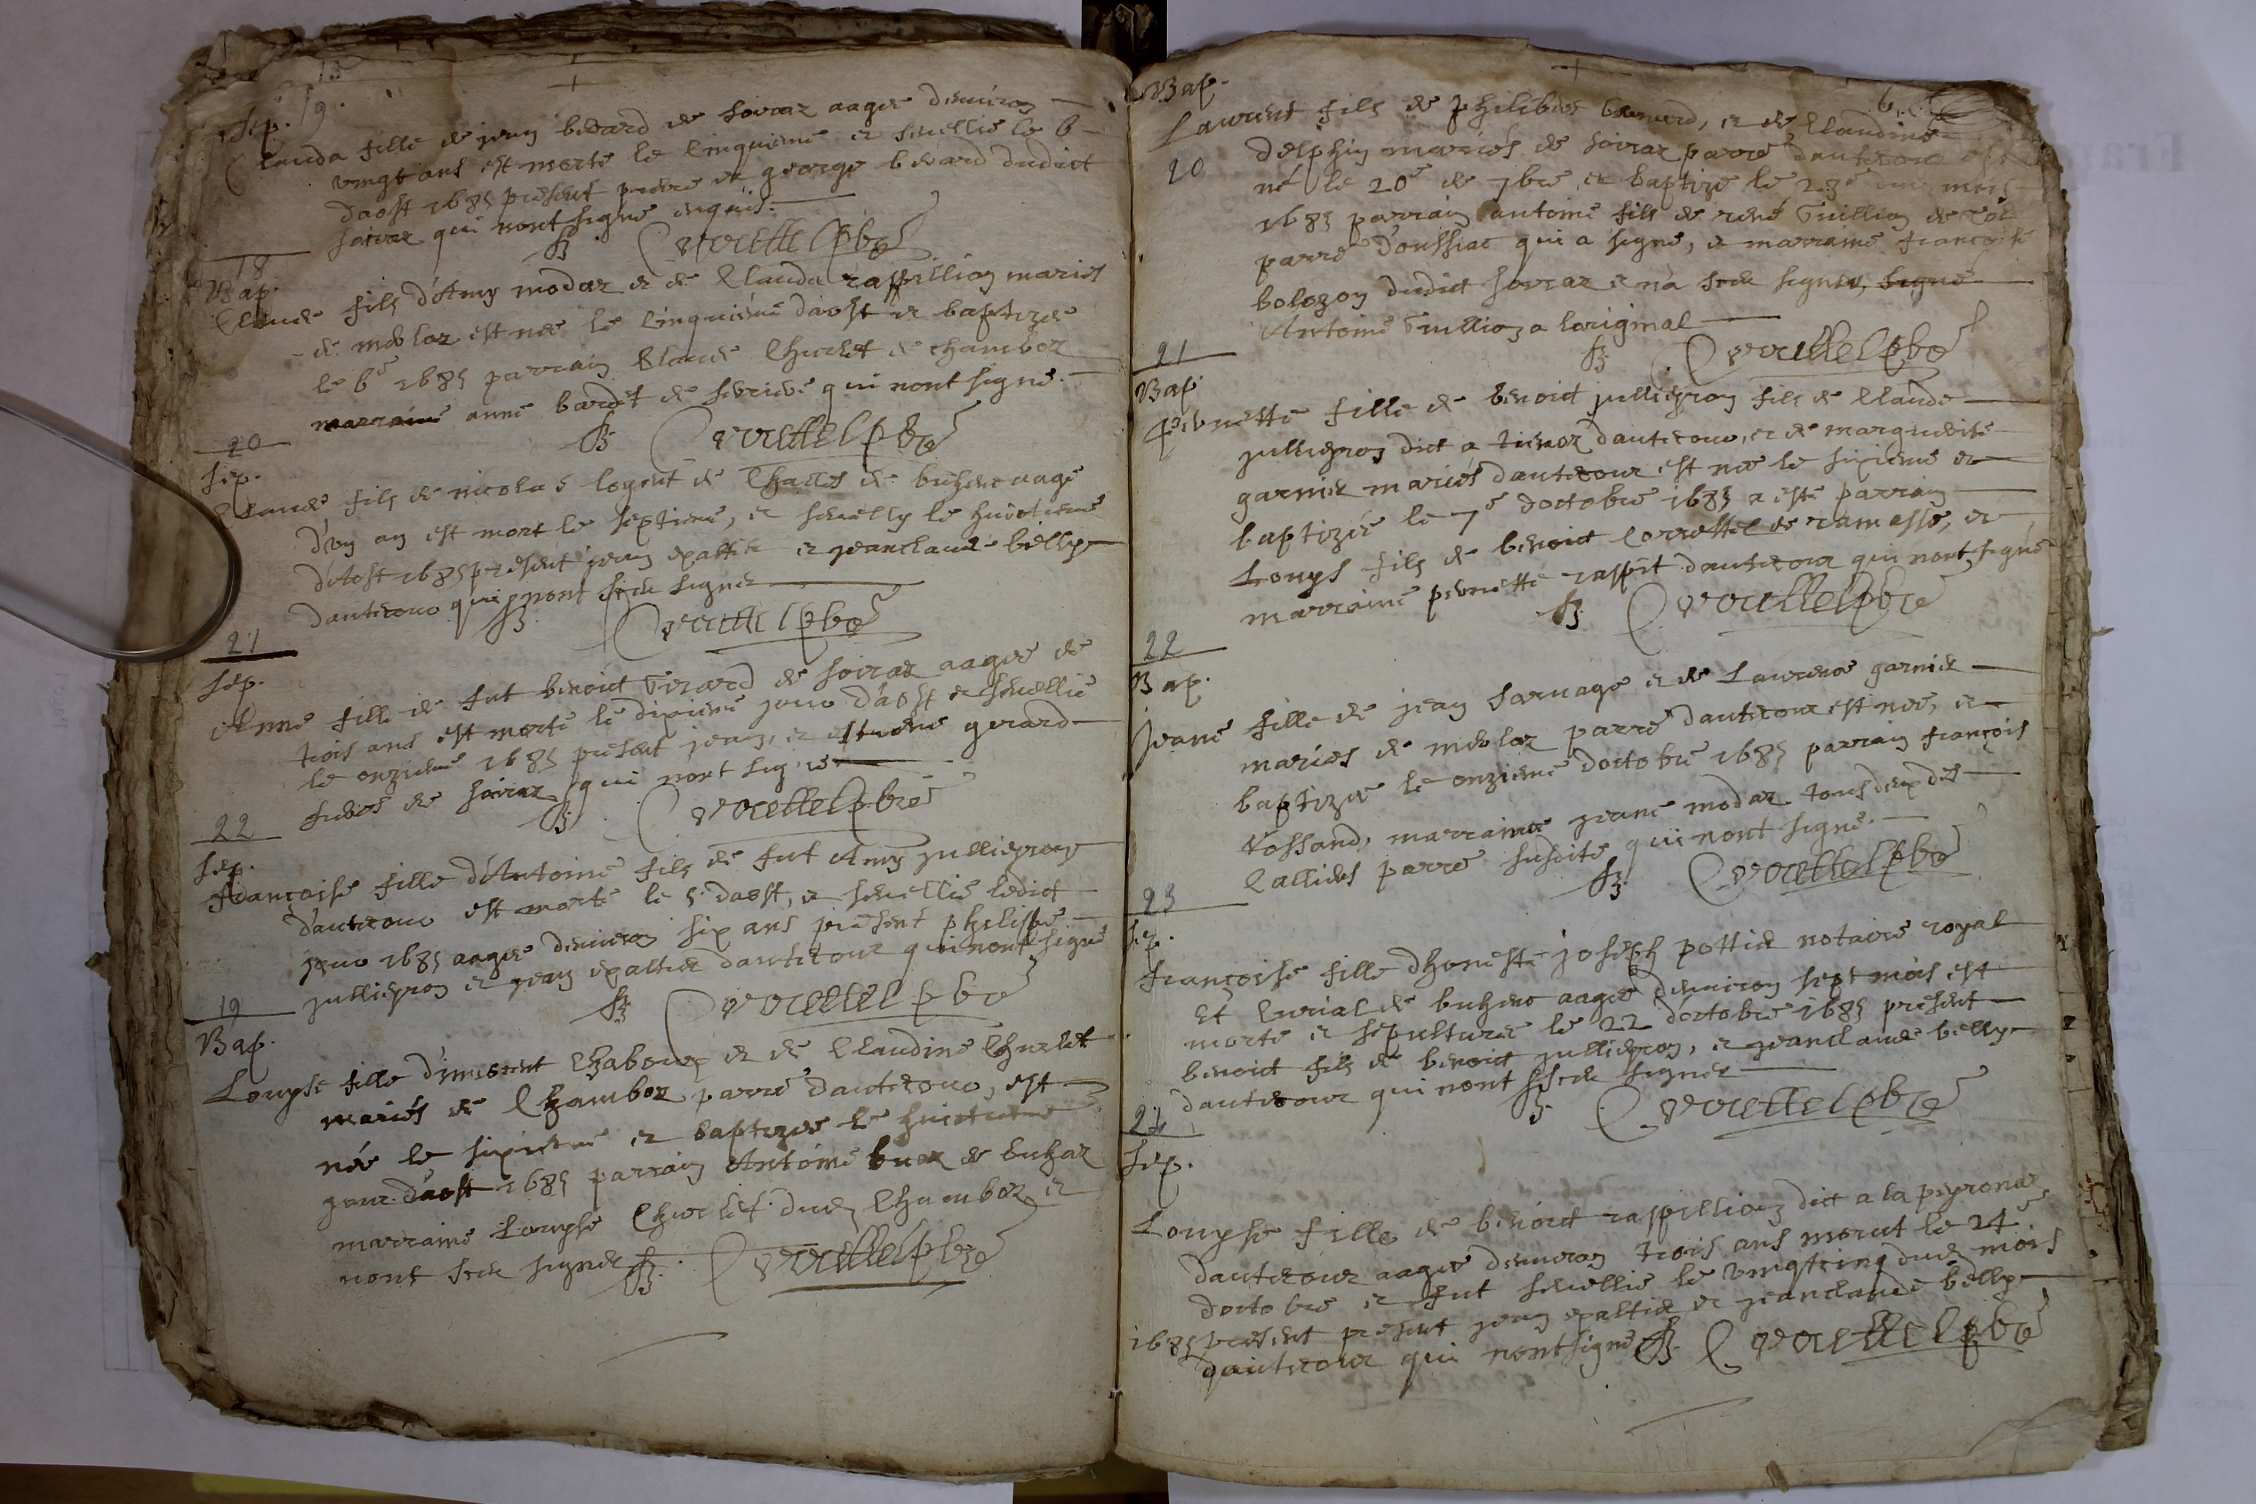 13
Sep. 19.
Clauda fille de jean bevard de soiria aagee denviron
vingt ans est morte le cinquieme et sevellie le 6
daost 1685 present pierre et george bevard dudict
soiria qui nont signé enquis.
Correttel pbre
18
Bap.
Claude fils d'Amy modaz et de Clauda raffillion mariés
de moloz est née le cinquiéme daost et baptizée
le 6e 1685 parrain Claude Churlet de chamboz
marraine anne bardet de qui nont signé.
Correttel pbre
20
Sep.
Claude fils de nicolas logeut de Challes de buhenc aagé
d'un an est mort le septieme, et sevelly le huictieme
d'Aost 1685 present jean et jeanclaude belly
dautrour qui nont sceu signer
Correttel pbre
21
Sep.
Anne fille de fut benoict Girard de soiria aagee de
trois ans est morte le dixieme jour d'aost et sevellie
le onzieme 1685 present jean, et estiene gerard
de soiria qui nont signé
Correttel pbre
22
Sep.
francoise fille d'Antoine fils de fut Amy jullieron
dautrour est morte le 5e daost, et sevellie ledict
jour 1685 aagee denviron six ans present philibe
jullieron et jean dautrour qui nont signé
Correttel pbre
19
Bap.
Louyse fille d'inncent Chaboux et de Claudine Churlet
mariés de Chamboz parre dautrour, est
née le sixieme et baptizee le huictieme
jour. d'aost 1685 parrain Antoine buer de buhaz
marraine Louyse Churlet dud Chamboz et
nont sceu signer
Correttel pbre
Bap.
Laurent fils de philibert bevard, et de Claudine
20
delphin mariés de soiriaz parre dautrour est
né le 20e de 7bre et baptizé le 23e mois
1685 parrain antoine fils de rené Guillion de
parre Doussiat qui a signé, et marraine francoise
bolozon dudict soiriaz et na sceu signer, signé
Antoine Guillion a loriginal
Correttel pbre
21
Bap
Pernette fille de benoict jullieron fils de Claude
jullieron dict a dautrour, et de marguerite
garnier mariés dautrour est née le sixieme et
baptizée le 7e doctobre 1685 a esté parrain
Louys fils de benoict Correttel de ramasse, et
marraine pernette raffit dautrour qui nont signé
Correttel pbre
22
Bap.
Jeane fille de jean sarvage et de Laurence garnier
mariés de moloz parre dautrour est née, et
baptizee le onzieme doctobre 1685 parrain françois
Vossand, marraine jeane modaz tous deux des
Callies parre susdite qui nont signé.
Correttel pbre
23
Sep.
françoise fille dhoneste joseph pottier notaire royal
Et Curial de buhenc aagee denviron sept mois est
morte et sepulturee le 22 doctobre 1685 present
benoict fils de benoict jullieron, et jeanclaude belly
dautrour qui nont sceu signer
Correttel pbre
24
Sep.
Louyse fille de benoict raffillion dict a la peyrone
dautrour aagee denviron trois ans morut le 24e
doctobre et fut sevellie le vingtcinq dud mois
1685 present present jean et jeanclaude belly
dautrour qui nont signé
Correttel pbre